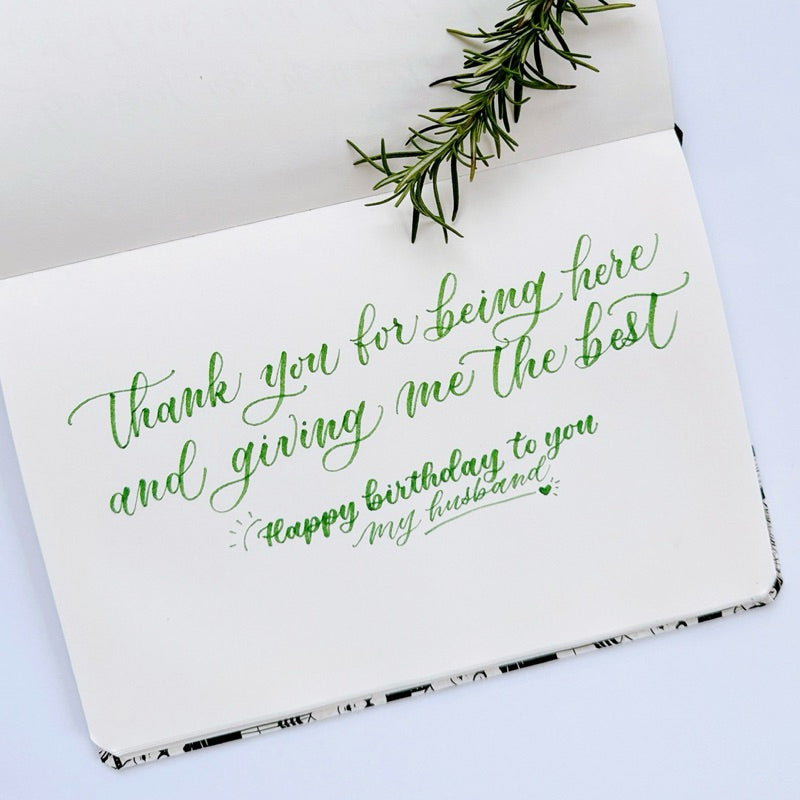 Thank you for being here
and giving me the best
Happy birthday to you
my husband